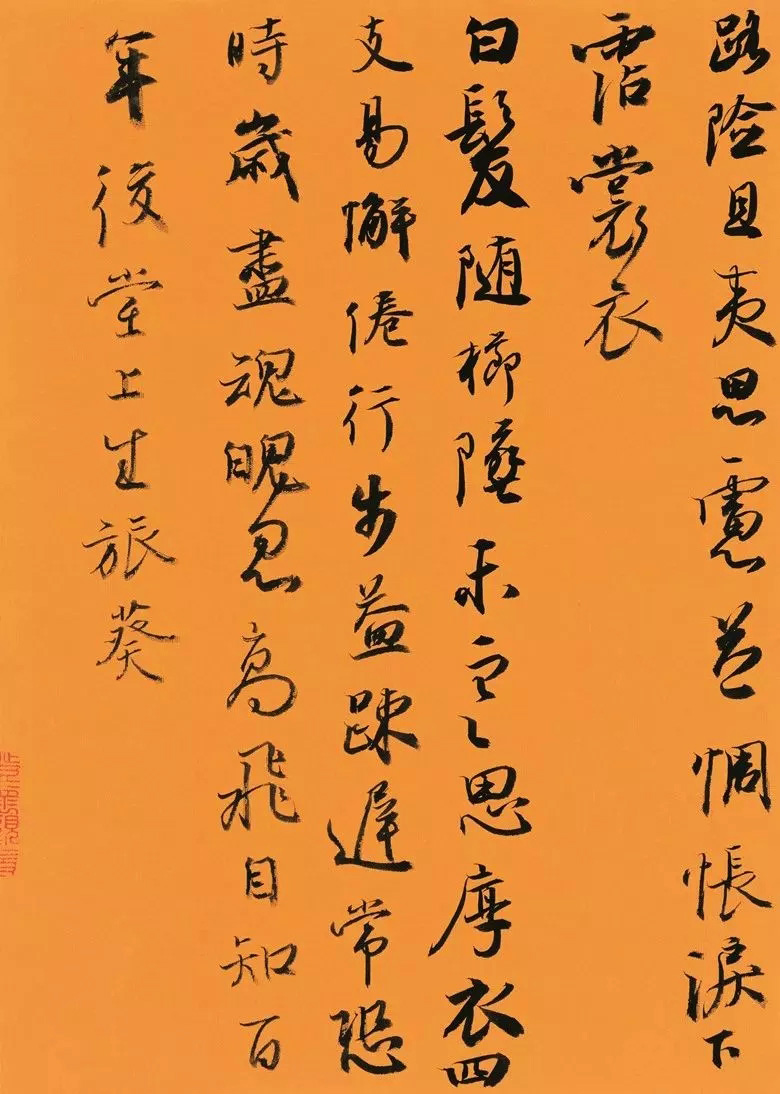 路險且夷思慮益惆悵淚下
霑裳衣
白髮隨櫛墜未寒思厚衣四
支易懈倦行步益疎遲常恐
時歲盡魂魄忽高飛自知百
年後堂上生旅葵